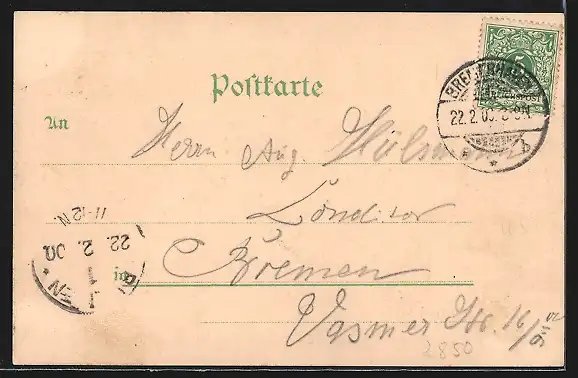 Postkarte
BREMERHAVEN
22.2.00. 8-9N
b
An
Herrn Aug.
Conditor
11-12 N.
22. 2. 00.
in Bremen
Vasmer Str. 16/
2850